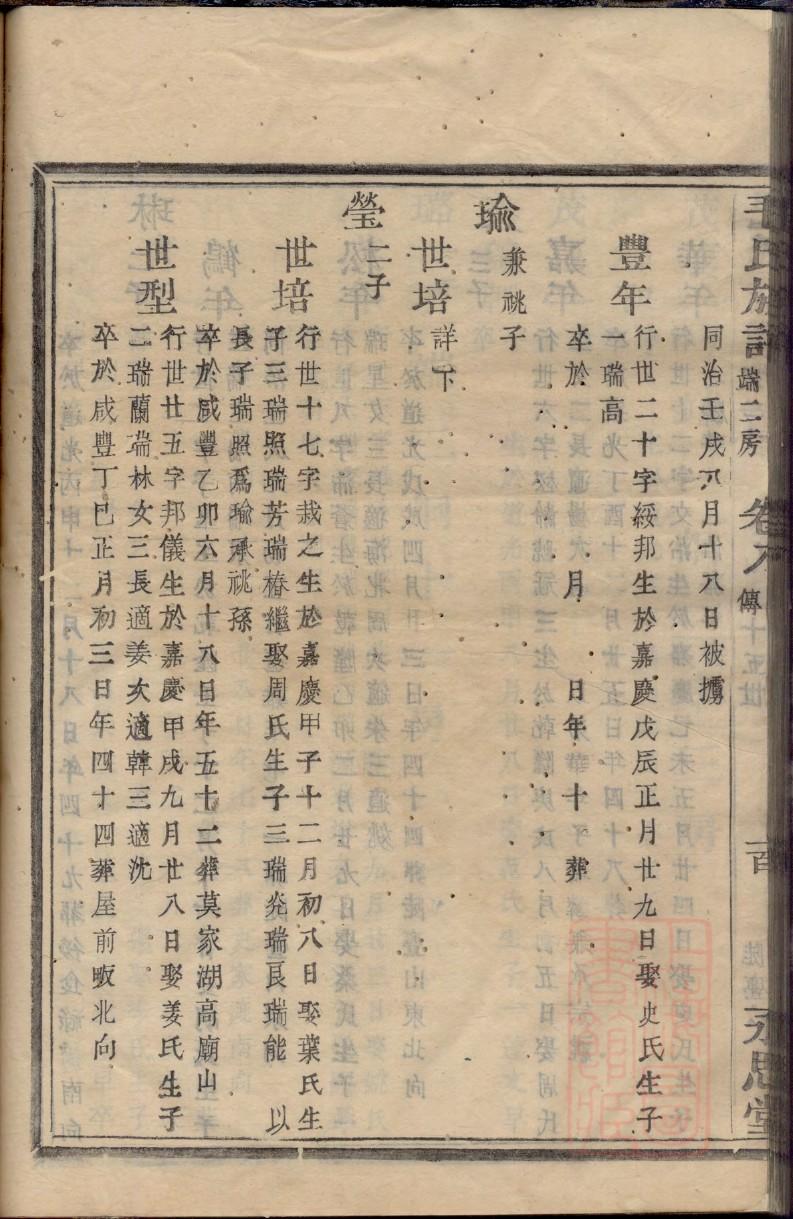 毛氏族譜 端二房 卷八 傳 十五世 百 永思堂
同治壬戌八月十八日被擄
豐年 行世二十字綏邦生於嘉慶戊辰正月廿九日娶史氏生子
一瑞高
卒於 月 日年 十 葬
瑜 兼祧子
世培 詳下
瑩 二子
世培 行世十七字栽之生於嘉慶甲子十二月初八日娶葉氏生
子三瑞照瑞芳瑞椿繼娶周氏生子三瑞堯瑞良瑞能 以
長子瑞照爲瑜承祧孫
卒於咸豐乙卯六月十八日年五十二葬莫家湖高廟山
世型 行世廿五字邦儀生於嘉慶甲戌九月廿八日娶姜氏生子
二瑞蘭瑞林女三長適姜次適韓三適沈
卒於咸豐丁巳正月初三日年四十四葬屋前畈北向